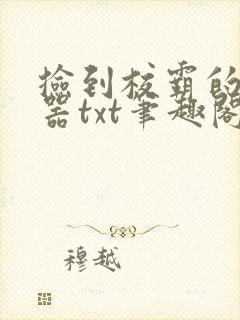 撿到校霸的
器txt筆趣閣
穆越